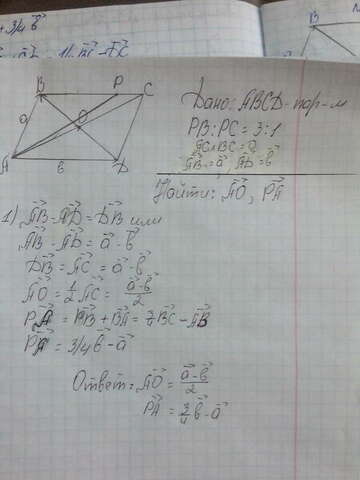 + 3/4 b⃗
B P C
a O
A в D
Дано: ABCD - пар-м
PB:PC = 3:1
AC∩BC = O
AB⃗ = a⃗, AD⃗ = b⃗
Найти: AO⃗, PA⃗
1) AB⃗ - AD⃗ = DB⃗ или
AB⃗ - AD⃗ = a⃗ - b⃗
DB⃗ = AC⃗ = a⃗ - b⃗
AO⃗ = 1/2 AC⃗ = (a⃗ - b⃗)/2
PA⃗ = PB⃗ + BA⃗ = 3/4 BC⃗ - AB⃗
PA⃗ = 3/4 b⃗ - a⃗
Ответ: AO⃗ = (a⃗ - b⃗)/2
PA⃗ = 3/4 b⃗ - a⃗